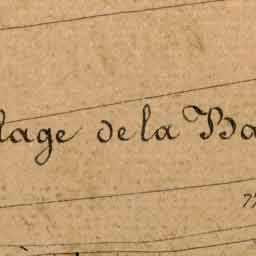 lage de la Ba